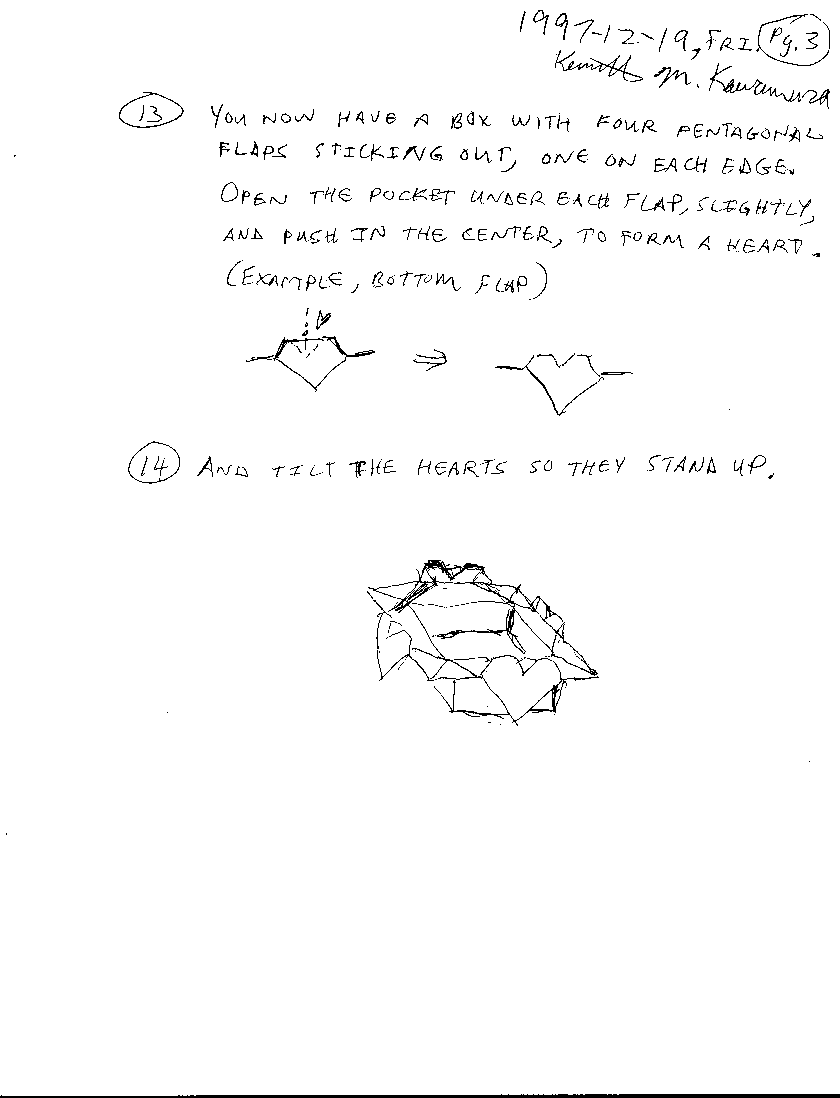 1997-12-19, FRI. Pg. 3
Kenneth M. Kawamura
13 YOU NOW HAVE A BOX WITH FOUR PENTAGONAL
FLAPS STICKING OUT, ONE ON EACH EDGE.
OPEN THE POCKET UNDER EACH FLAP, SLIGHTLY,
AND PUSH IN THE CENTER, TO FORM A HEART.
(EXAMPLE, BOTTOM FLAP)
14 AND TILT THE HEARTS SO THEY STAND UP.